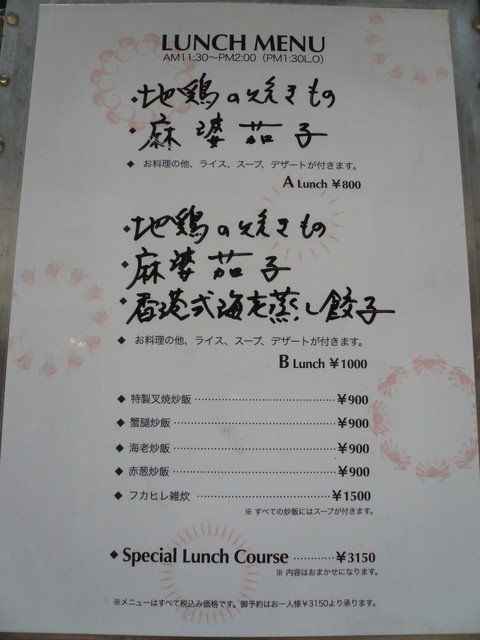 LUNCH MENU
AM11:30〜PM2:00 (PM1:30L.O)
・地鶏の焼きもの
・麻婆茄子
◆ お料理の他、ライス、スープ、デザートが付きます。
A Lunch ¥800
・地鶏の焼きもの
・麻婆茄子
・香港式海老蒸し餃子
◆ お料理の他、ライス、スープ、デザートが付きます。
B Lunch ¥1000
◆ 特製叉焼炒飯 ¥900
◆ 蟹腿炒飯 ¥900
◆ 海老炒飯 ¥900
◆ 赤葱炒飯 ¥900
◆ フカヒレ雑炊 ¥1500
※ すべての炒飯にはスープが付きます。
◆ Special Lunch Course ¥3150
※ 内容はおまかせになります。
※メニューはすべて税込み価格です。御予約はお一人様¥3150より承ります。